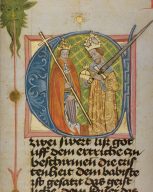 zwei swert lisz got
uff dem ertriche zu
beschirmen die cris
tenheit dem babiste
ist gesatzt das geist